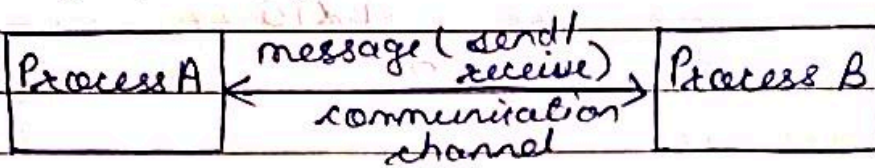 Process A
message (send/
receive)
communication
channel
Process B